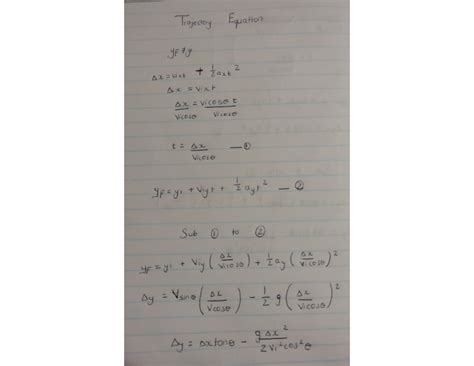 Trajectory Equation
yf ≠ y
Δx = vixt + ½axt²
Δx = vixt
Δx/vicosθ = vicosθ t/vicosθ
t = Δx/vicosθ — ①
yf = yi + viyt + ½ayt² — ②
Sub ① to ②
yf = yi + viy(Δx/vicosθ) + ½ay(Δx/vicosθ)²
Δy = Vsinθ(Δx/vicosθ) - ½g(Δx/vicosθ)²
Δy = Δxtanθ - gΔx²/2vi²cos²θ